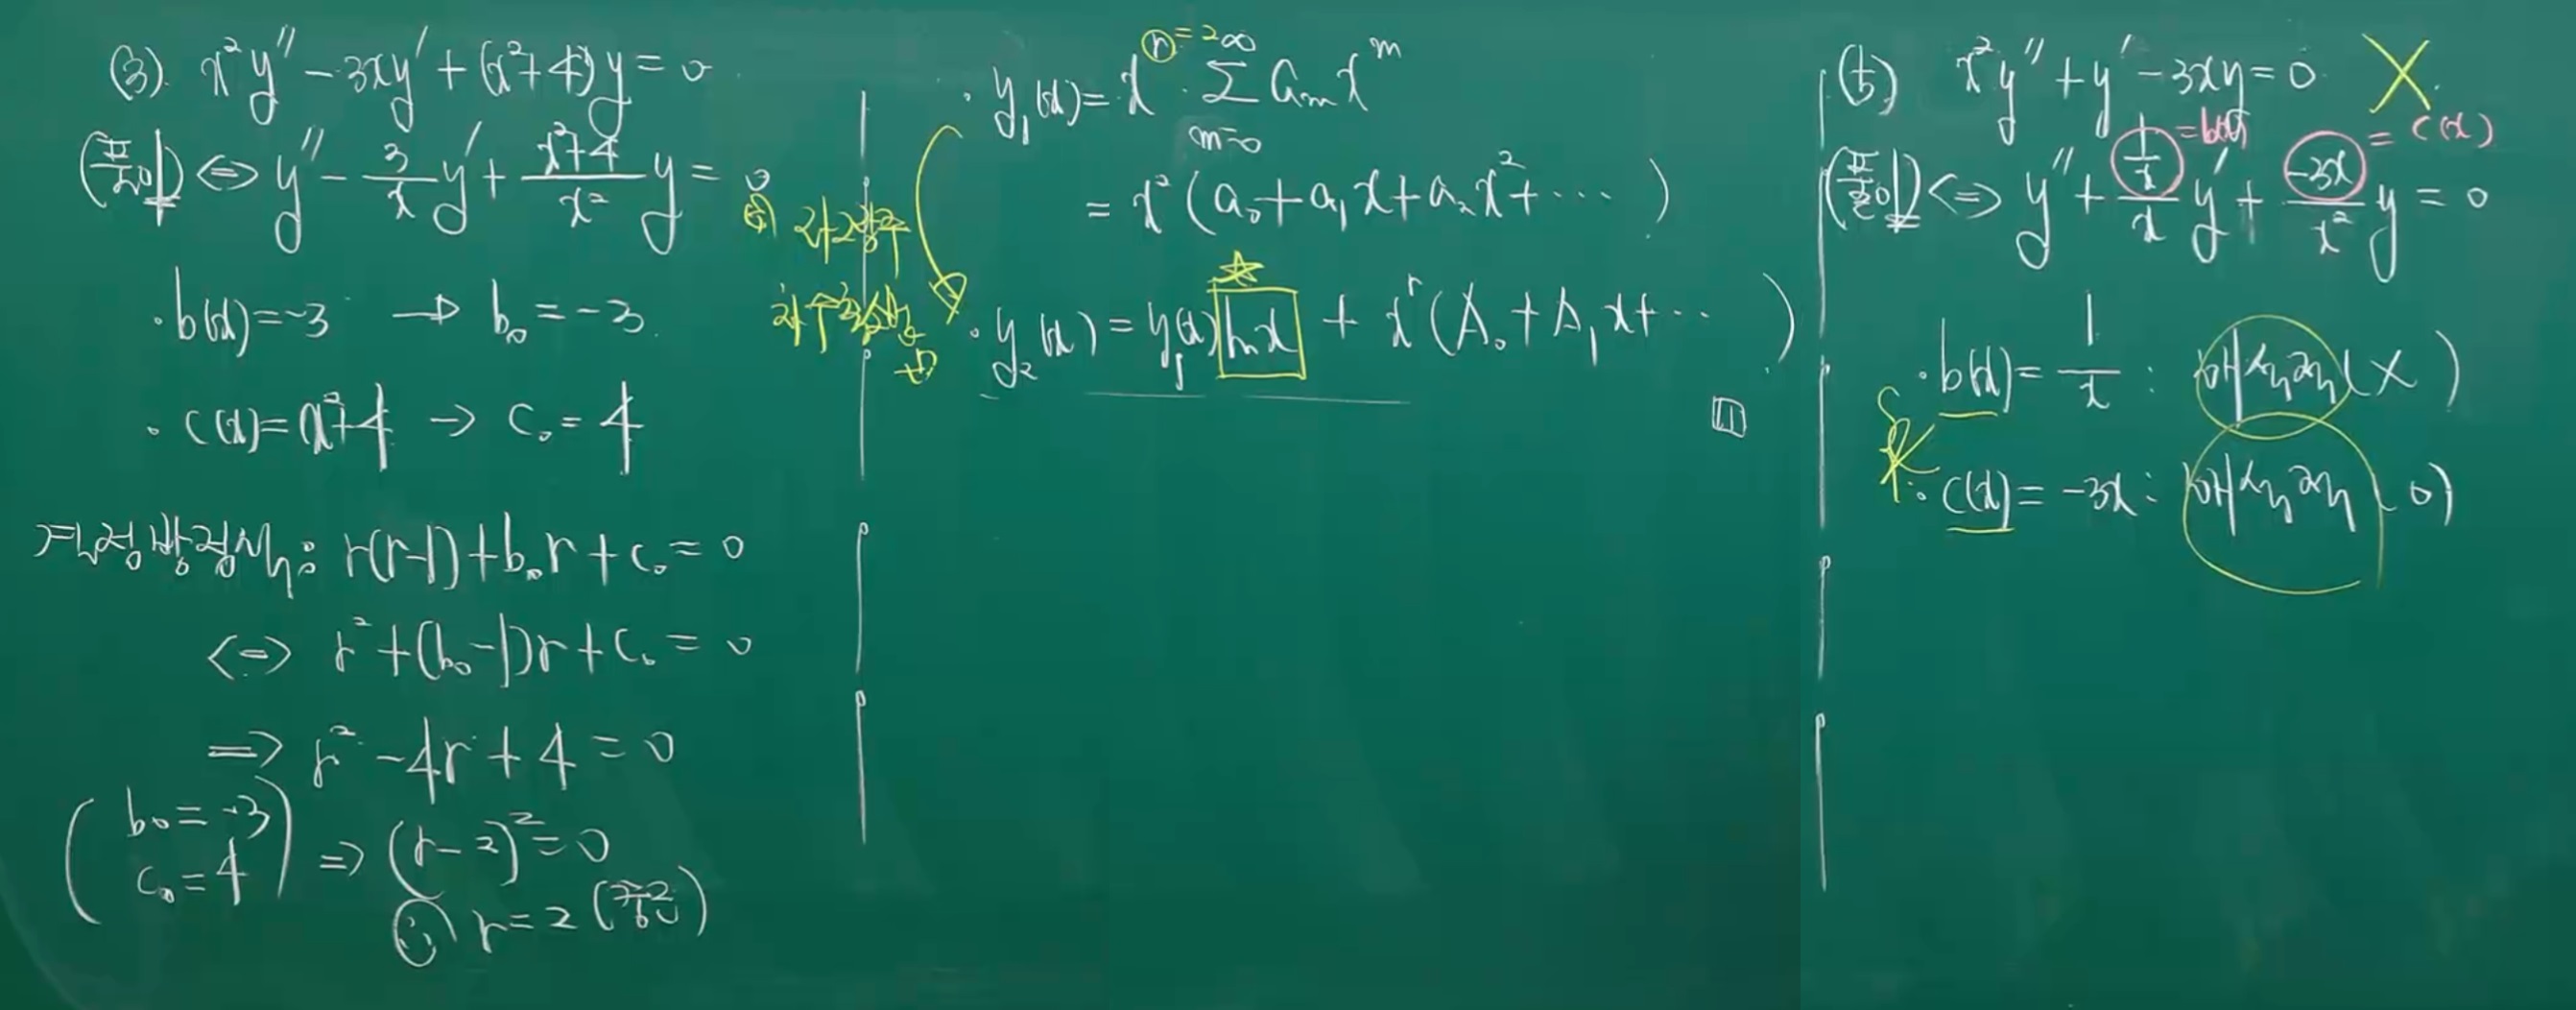 (3). x²y″ - 3xy′ + (x²+4)y = 0
(표준형) ⇔ y″ - 3/x y′ + (x²+4)/x² y = 0
· b(x) = -3 → b₀ = -3.
· c(x) = x²+4 → c₀ = 4
결정방정식: r(r-1) + b₀r + c₀ = 0
⇔ r² + (b₀-1)r + c₀ = 0
⇒ r² - 4r + 4 = 0
(b₀ = -3
c₀ = 4) ⇒ (r-2)² = 0
∴ r = 2 (중근)
· y₁(x) = x^r · ∞Σm=0 aₘx^m
r = 2
= x²(a₀ + a₁x + a₂x² + ⋯ )
☆
· y₂(x) = y₁(x) ln x + x^r(A₀ + A₁x + ⋯ )
(5) x²y″ + y′ - 3xy = 0 X
(표준형) ⇔ y″ + (1/x)/x y′ + (-3x)/x² y = 0
= b(x)
= c(x)
· b(x) = 1/x : 해석적 (X)
· c(x) = -3x : 해석적 (0)